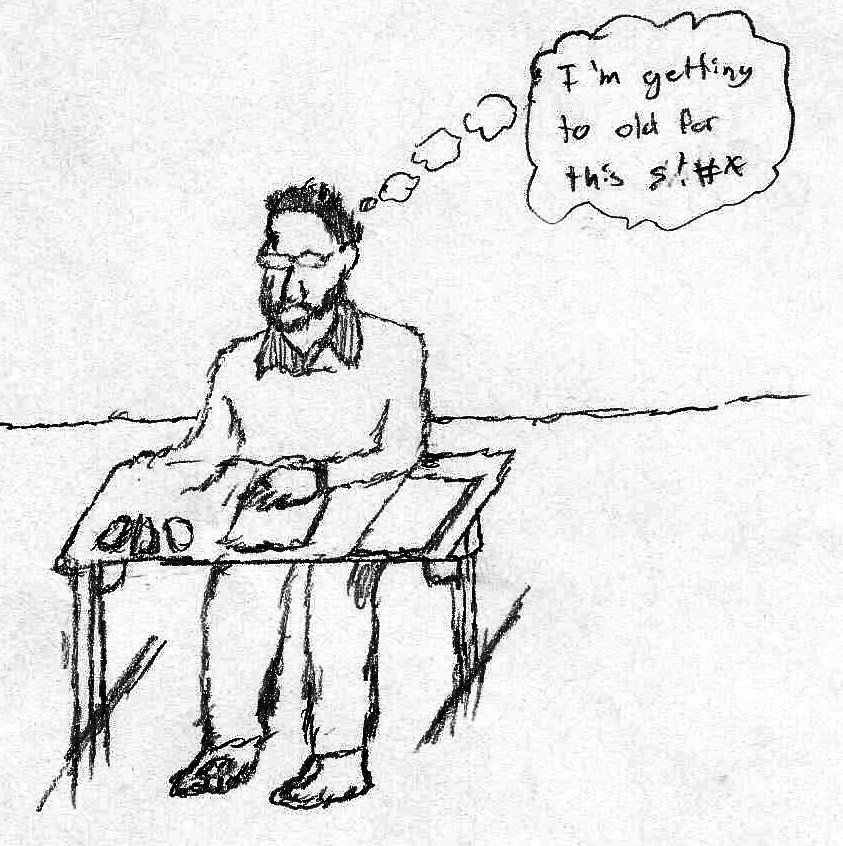 I'm getting
to old for
this s!#*